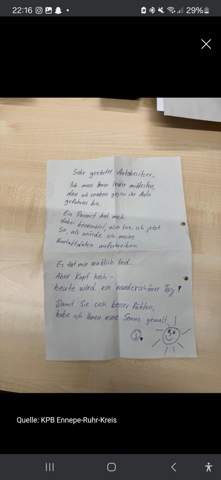 22:16
29%
Sehr geehrter Autobesitzer,
Ich muss Ihnen leider mitteilen,
dass ich soeben gegen Ihr Auto
gefahren bin.
Ein Passant hat mich
dabei beobachtet, also tue ich jetzt
so, als würde ich meine
Kontaktdaten aufschreiben.
Es tut mir wirklich leid.
Aber Kopf hoch –
heute wird ein wunderschöner Tag!
Damit Sie sich besser fühlen,
habe ich Ihnen eine Sonne gemalt.
Quelle: KPB Ennepe-Ruhr-Kreis